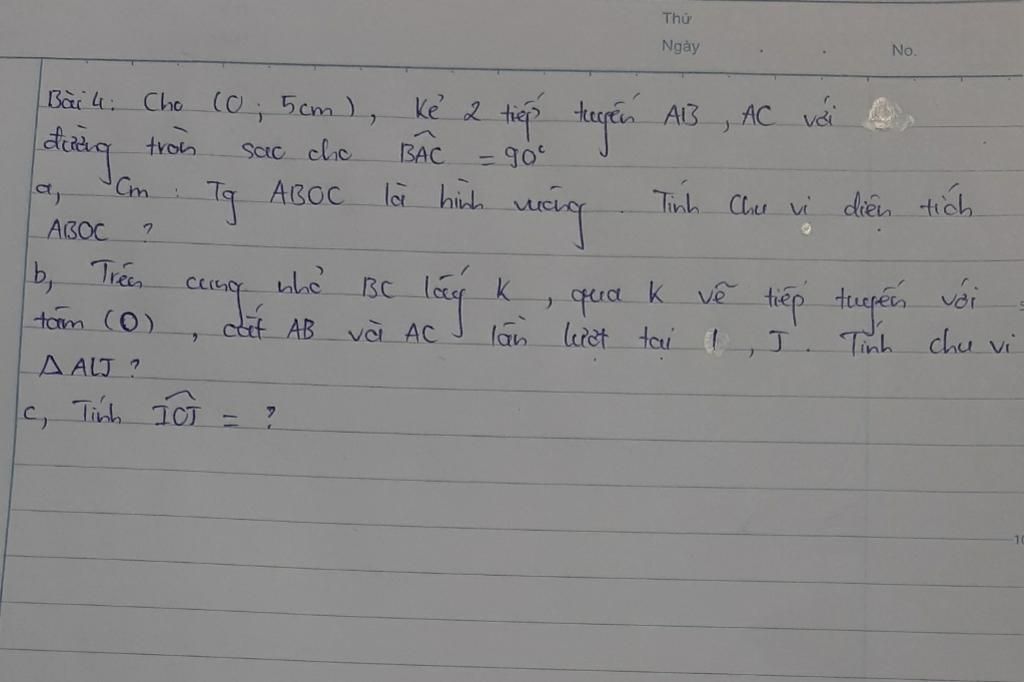 Thứ
Ngày . . No.
Bài 4: Cho (O; 5cm), Kẻ 2 tiếp tuyến AB, AC với
đường tròn sao cho BAC = 90°
a, Cm: Tg ABOC là hình vuông. Tính Chu vi diện tích
ABOC ?
b, Trên cung nhỏ BC lấy K, qua K vẽ tiếp tuyến với
tâm (O), cắt AB và AC lần lượt tại I, J. Tính chu vi
Δ AIJ ?
c, Tính IOJ = ?
10